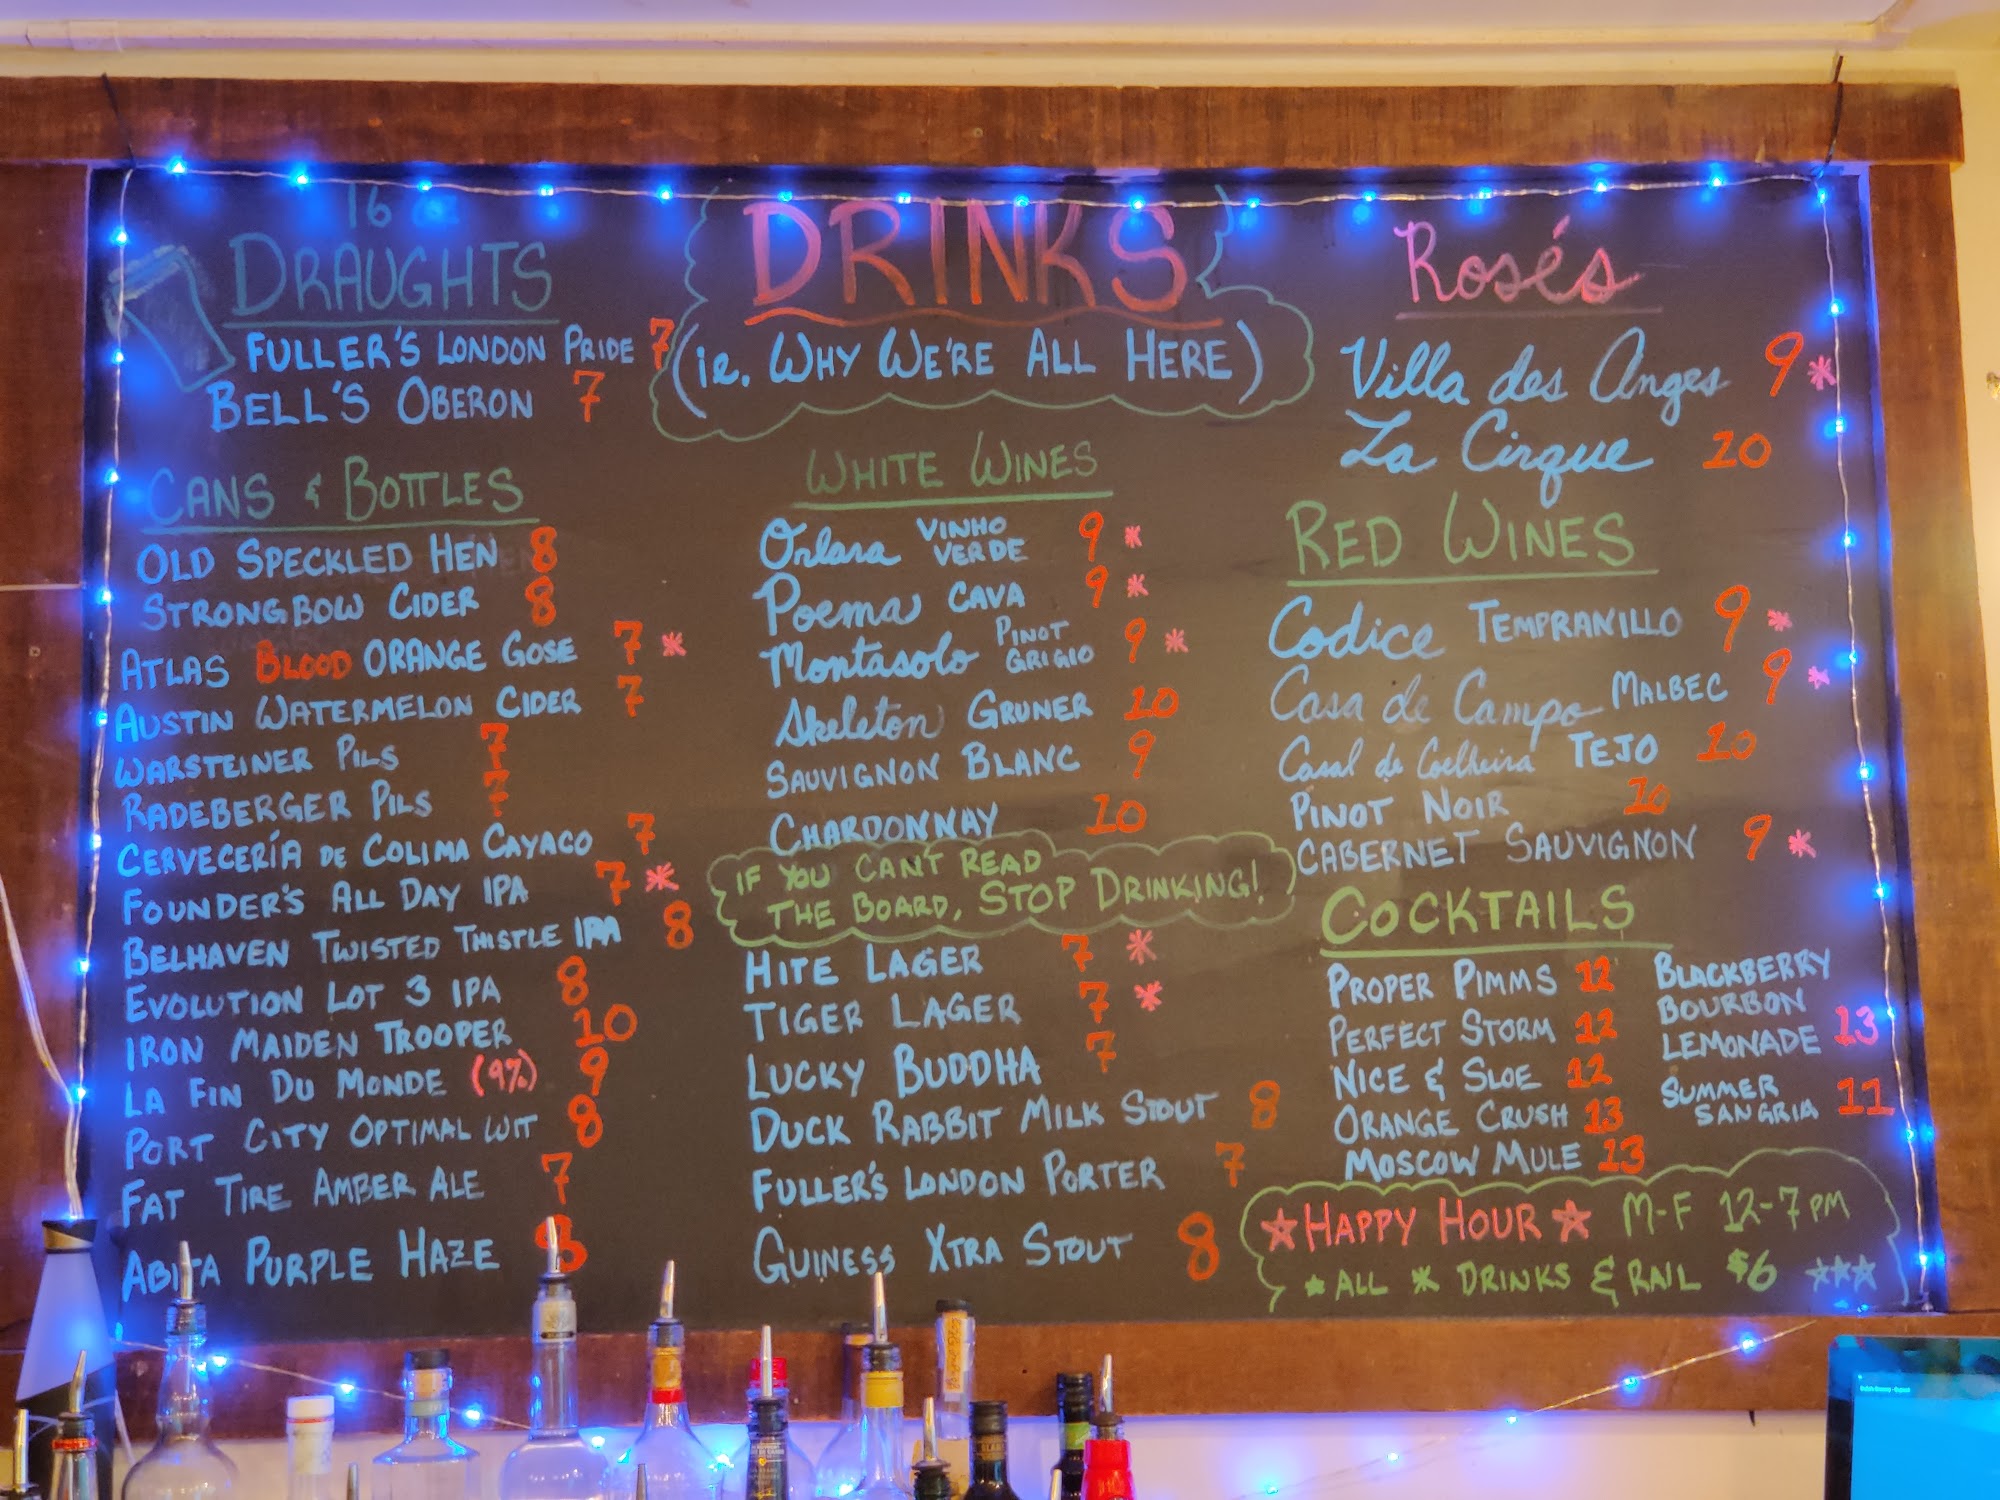 16
DRAUGHTS
FULLER'S LONDON PRIDE 7
BELL'S OBERON 7
CANS & BOTTLES
OLD SPECKLED HEN 8
STRONGBOW CIDER 8
ATLAS BLOOD ORANGE GOSE 7 *
AUSTIN WATERMELON CIDER 7
WARSTEINER PILS 7
RADEBERGER PILS 7
CERVECERÍA DE COLIMA CAYACO 7
FOUNDER'S ALL DAY IPA 7 *
BELHAVEN TWISTED THISTLE IPA 8
EVOLUTION LOT 3 IPA 8
IRON MAIDEN TROOPER 10
LA FIN DU MONDE (9%) 9
PORT CITY OPTIMAL WIT 8
FAT TIRE AMBER ALE 7
ABITA PURPLE HAZE 8
DRINKS
(ie. WHY WE'RE ALL HERE)
WHITE WINES
Orlana VINHO
VERDE 9 *
Poema CAVA 9 *
Montasolo PINOT
GRIGIO 9 *
Skeleton GRUNER 10
SAUVIGNON BLANC 9
CHARDONNAY 10
IF YOU CAN'T READ
THE BOARD, STOP DRINKING!
HITE LAGER 7 *
TIGER LAGER 7 *
LUCKY BUDDHA 7
DUCK RABBIT MILK STOUT 8
FULLER'S LONDON PORTER 7
GUINESS XTRA STOUT 8
Rosés
Villa des Anges 9 *
La Cirque 10
RED WINES
Codice TEMPRANILLO 9 *
Casa de Campo MALBEC 9 *
Casal de Coelheira TEJO 10
PINOT NOIR 10
CABERNET SAUVIGNON 9 *
COCKTAILS
PROPER PIMMS 12
PERFECT STORM 12
NICE & SLOE 12
ORANGE CRUSH 13
MOSCOW MULE 13
BLACKBERRY
BOURBON
LEMONADE 13
SUMMER
SANGRIA 11
☆HAPPY HOUR☆ M-F 12-7PM
★ALL * DRINKS & RAIL $6 ☆☆☆